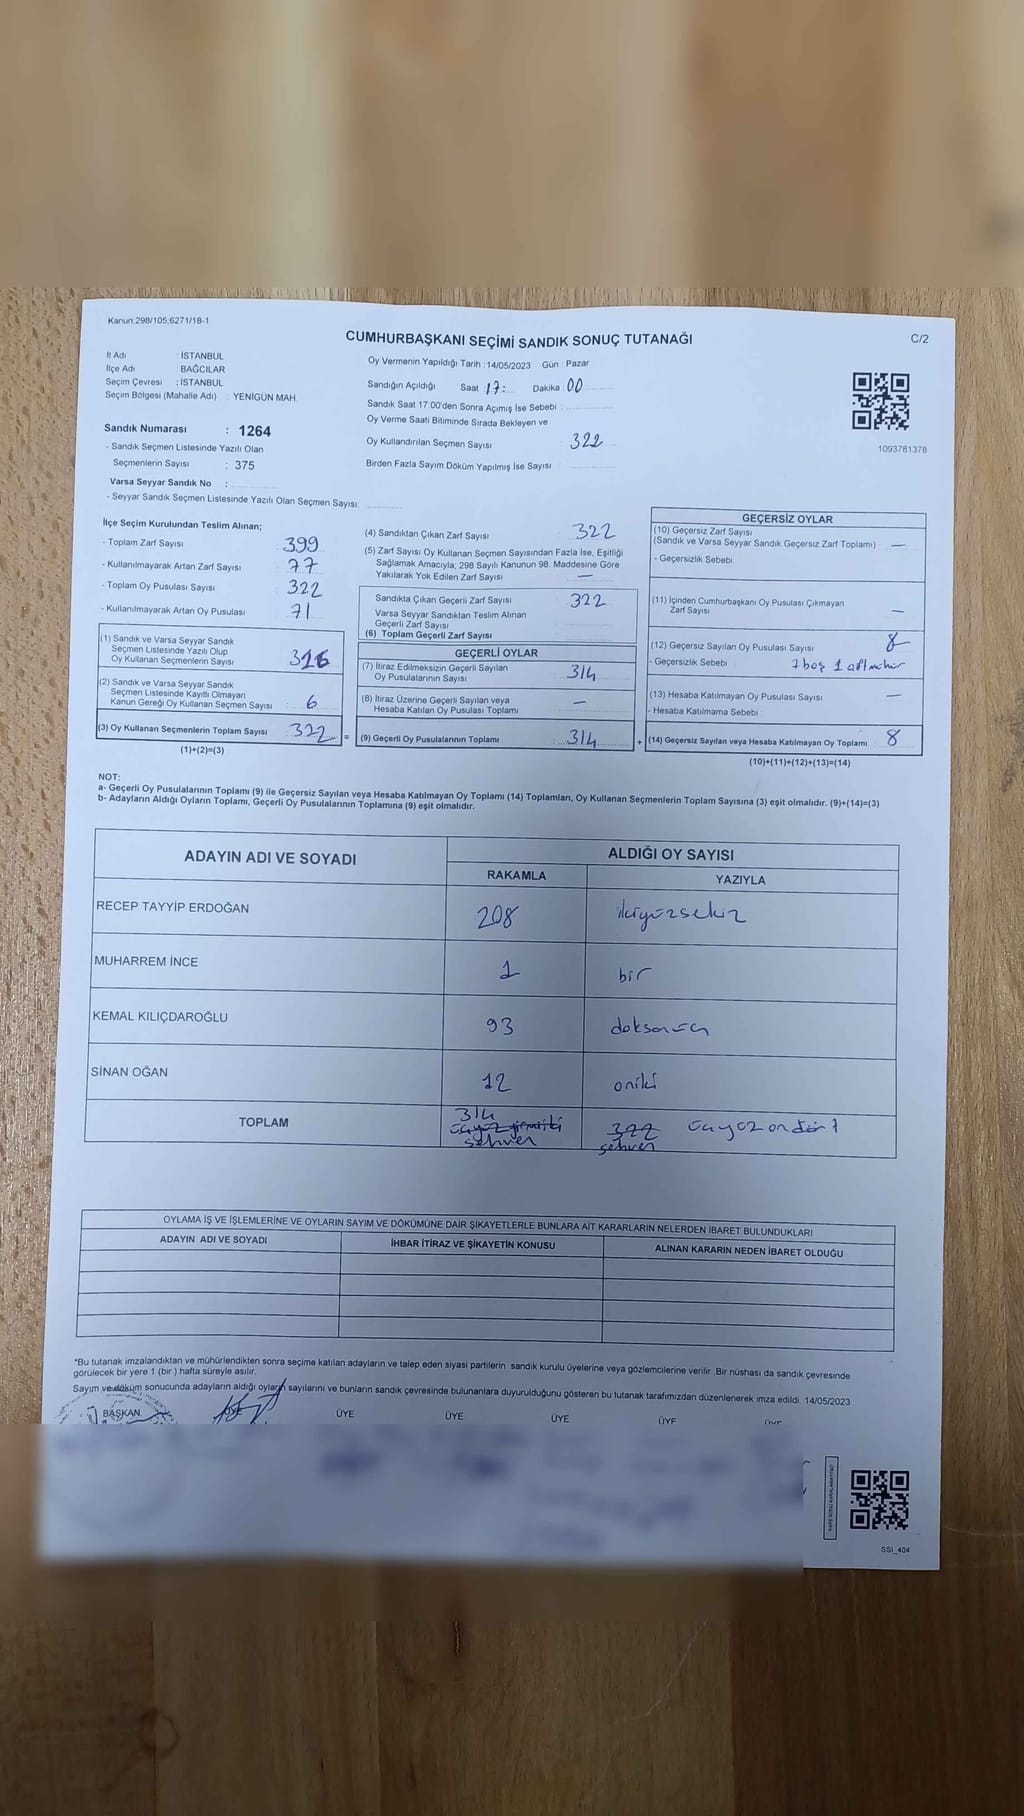 Kanun:298/105,6271/18-1
CUMHURBAŞKANI SEÇİMİ SANDIK SONUÇ TUTANAĞI
C/2
İl Adı : İSTANBUL
İlçe Adı BAĞCILAR
Seçim Çevresi : İSTANBUL
Seçim Bölgesi (Mahalle Adı) : YENİGÜN MAH.
Sandık Numarası : 1264
- Sandık Seçmen Listesinde Yazılı Olan
Seçmenlerin Sayısı : 375
Varsa Seyyar Sandık No :
- Seyyar Sandık Seçmen Listesinde Yazılı Olan Seçmen Sayısı:
Oy Vermenin Yapıldığı Tarih : 14/05/2023 Gün : Pazar
Sandığın Açıldığı Saat 17: Dakika : 00
Sandık Saat 17:00'den Sonra Açımış İse Sebebi :
Oy Verme Saati Bitiminde Sırada Bekleyen ve
Oy Kullandırılan Seçmen Sayısı 322
Birden Fazla Sayım Döküm Yapılmış İse Sayısı
1093781378
İlçe Seçim Kurulundan Teslim Alınan;
- Toplam Zarf Sayısı 399
- Kullanılmayarak Artan Zarf Sayısı 77
- Toplam Oy Pusulası Sayısı 322
- Kullanılmayarak Artan Oy Pusulası 71
(1) Sandık ve Varsa Seyyar Sandık
Seçmen Listesinde Yazılı Olup
Oy Kullanan Seçmenlerin Sayısı 316
(2) Sandık ve Varsa Seyyar Sandık
Seçmen Listesinde Kayıtlı Olmayan
Kanun Gereği Oy Kullanan Seçmen Sayısı 6
(3) Oy Kullanan Seçmenlerin Toplam Sayısı 322 =
(1)+(2)=(3)
(4) Sandıktan Çıkan Zarf Sayısı 322
(5) Zarf Sayısı Oy Kullanan Seçmen Sayısından Fazla İse, Eşitliği
Sağlamak Amacıyla; 298 Sayılı Kanunun 98. Maddesine Göre
Yakılarak Yok Edilen Zarf Sayısı —
Sandıkta Çıkan Geçerli Zarf Sayısı 322
Varsa Seyyar Sandıktan Teslim Alınan
Geçerli Zarf Sayısı
(6) Toplam Geçerli Zarf Sayısı
GEÇERLİ OYLAR
(7) İtiraz Edilmeksizin Geçerli Sayılan
Oy Pusulalarının Sayısı 314
(8) İtiraz Üzerine Geçerli Sayılan veya
Hesaba Katılan Oy Pusulası Toplamı —
(9) Geçerli Oy Pusulalarının Toplamı 314 +
GEÇERSİZ OYLAR
(10) Geçersiz Zarf Sayısı
(Sandık ve Varsa Seyyar Sandık Geçersiz Zarf Toplamı) —
- Geçersizlik Sebebi
(11) İçinden Cumhurbaşkanı Oy Pusulası Çıkmayan
Zarf Sayısı —
(12) Geçersiz Sayılan Oy Pusulası Sayısı 8
- Geçersizlik Sebebi 7 boş 1
(13) Hesaba Katılmayan Oy Pusulası Sayısı —
- Hesaba Katılmama Sebebi
(14) Geçersiz Sayılan veya Hesaba Katılmayan Oy Toplamı 8
(10)+(11)+(12)+(13)=(14)
NOT:
a- Geçerli Oy Pusulalarının Toplamı (9) ile Geçersiz Sayılan veya Hesaba Katılmayan Oy Toplamı (14) Toplamları, Oy Kullanan Seçmenlerin Toplam Sayısına (3) eşit olmalıdır. (9)+(14)=(3)
b- Adayların Aldığı Oyların Toplamı, Geçerli Oy Pusulalarının Toplamına (9) eşit olmalıdır.
ADAYIN ADI VE SOYADI ALDIĞI OY SAYISI
RAKAMLA YAZIYLA
RECEP TAYYİP ERDOĞAN 208 ikiyüzsekiz
MUHARREM İNCE 1 bir
KEMAL KILIÇDAROĞLU 93 doksanüç
SİNAN OĞAN 12 oniki
TOPLAM 314 üçyüzyirmiiki sehven 322 sehven üçyüzondört
OYLAMA İŞ VE İŞLEMLERİNE VE OYLARIN SAYIM VE DÖKÜMÜNE DAİR ŞİKAYETLERLE BUNLARA AİT KARARLARIN NELERDEN İBARET BULUNDUKLARI
ADAYIN ADI VE SOYADI İHBAR İTİRAZ VE ŞİKAYETİN KONUSU ALINAN KARARIN NEDEN İBARET OLDUĞU
*Bu tutanak imzalandıktan ve mühürlendikten sonra seçime katılan adayların ve talep eden siyasi partilerin sandık kurulu üyelerine veya gözlemcilerine verilir. Bir nüshası da sandık çevresinde
görülecek bir yere 1 (bir) hafta süreyle asılır.
Sayım ve döküm sonucunda adayların aldığı oyların sayılarını ve bunların sandık çevresinde bulunanlara duyurulduğunu gösteren bu tutanak tarafımızdan düzenlenerek imza edildi. 14/05/2023
BAŞKAN ÜYE ÜYE ÜYE ÜYE ÜYE ÜYE
SSI_404